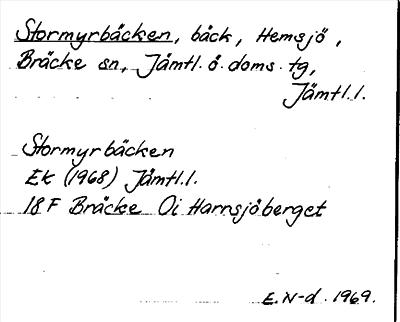 Stormyrbäcken, bäck, Hemsjö,
Bräcke sn, Jämtl. ö. doms. tg,
Jämtl. l.
Stormyrbäcken
Ek (1968) Jämtl. l.
18 F Bräcke Oi Harrsjöberget
E. N-d. 1969.